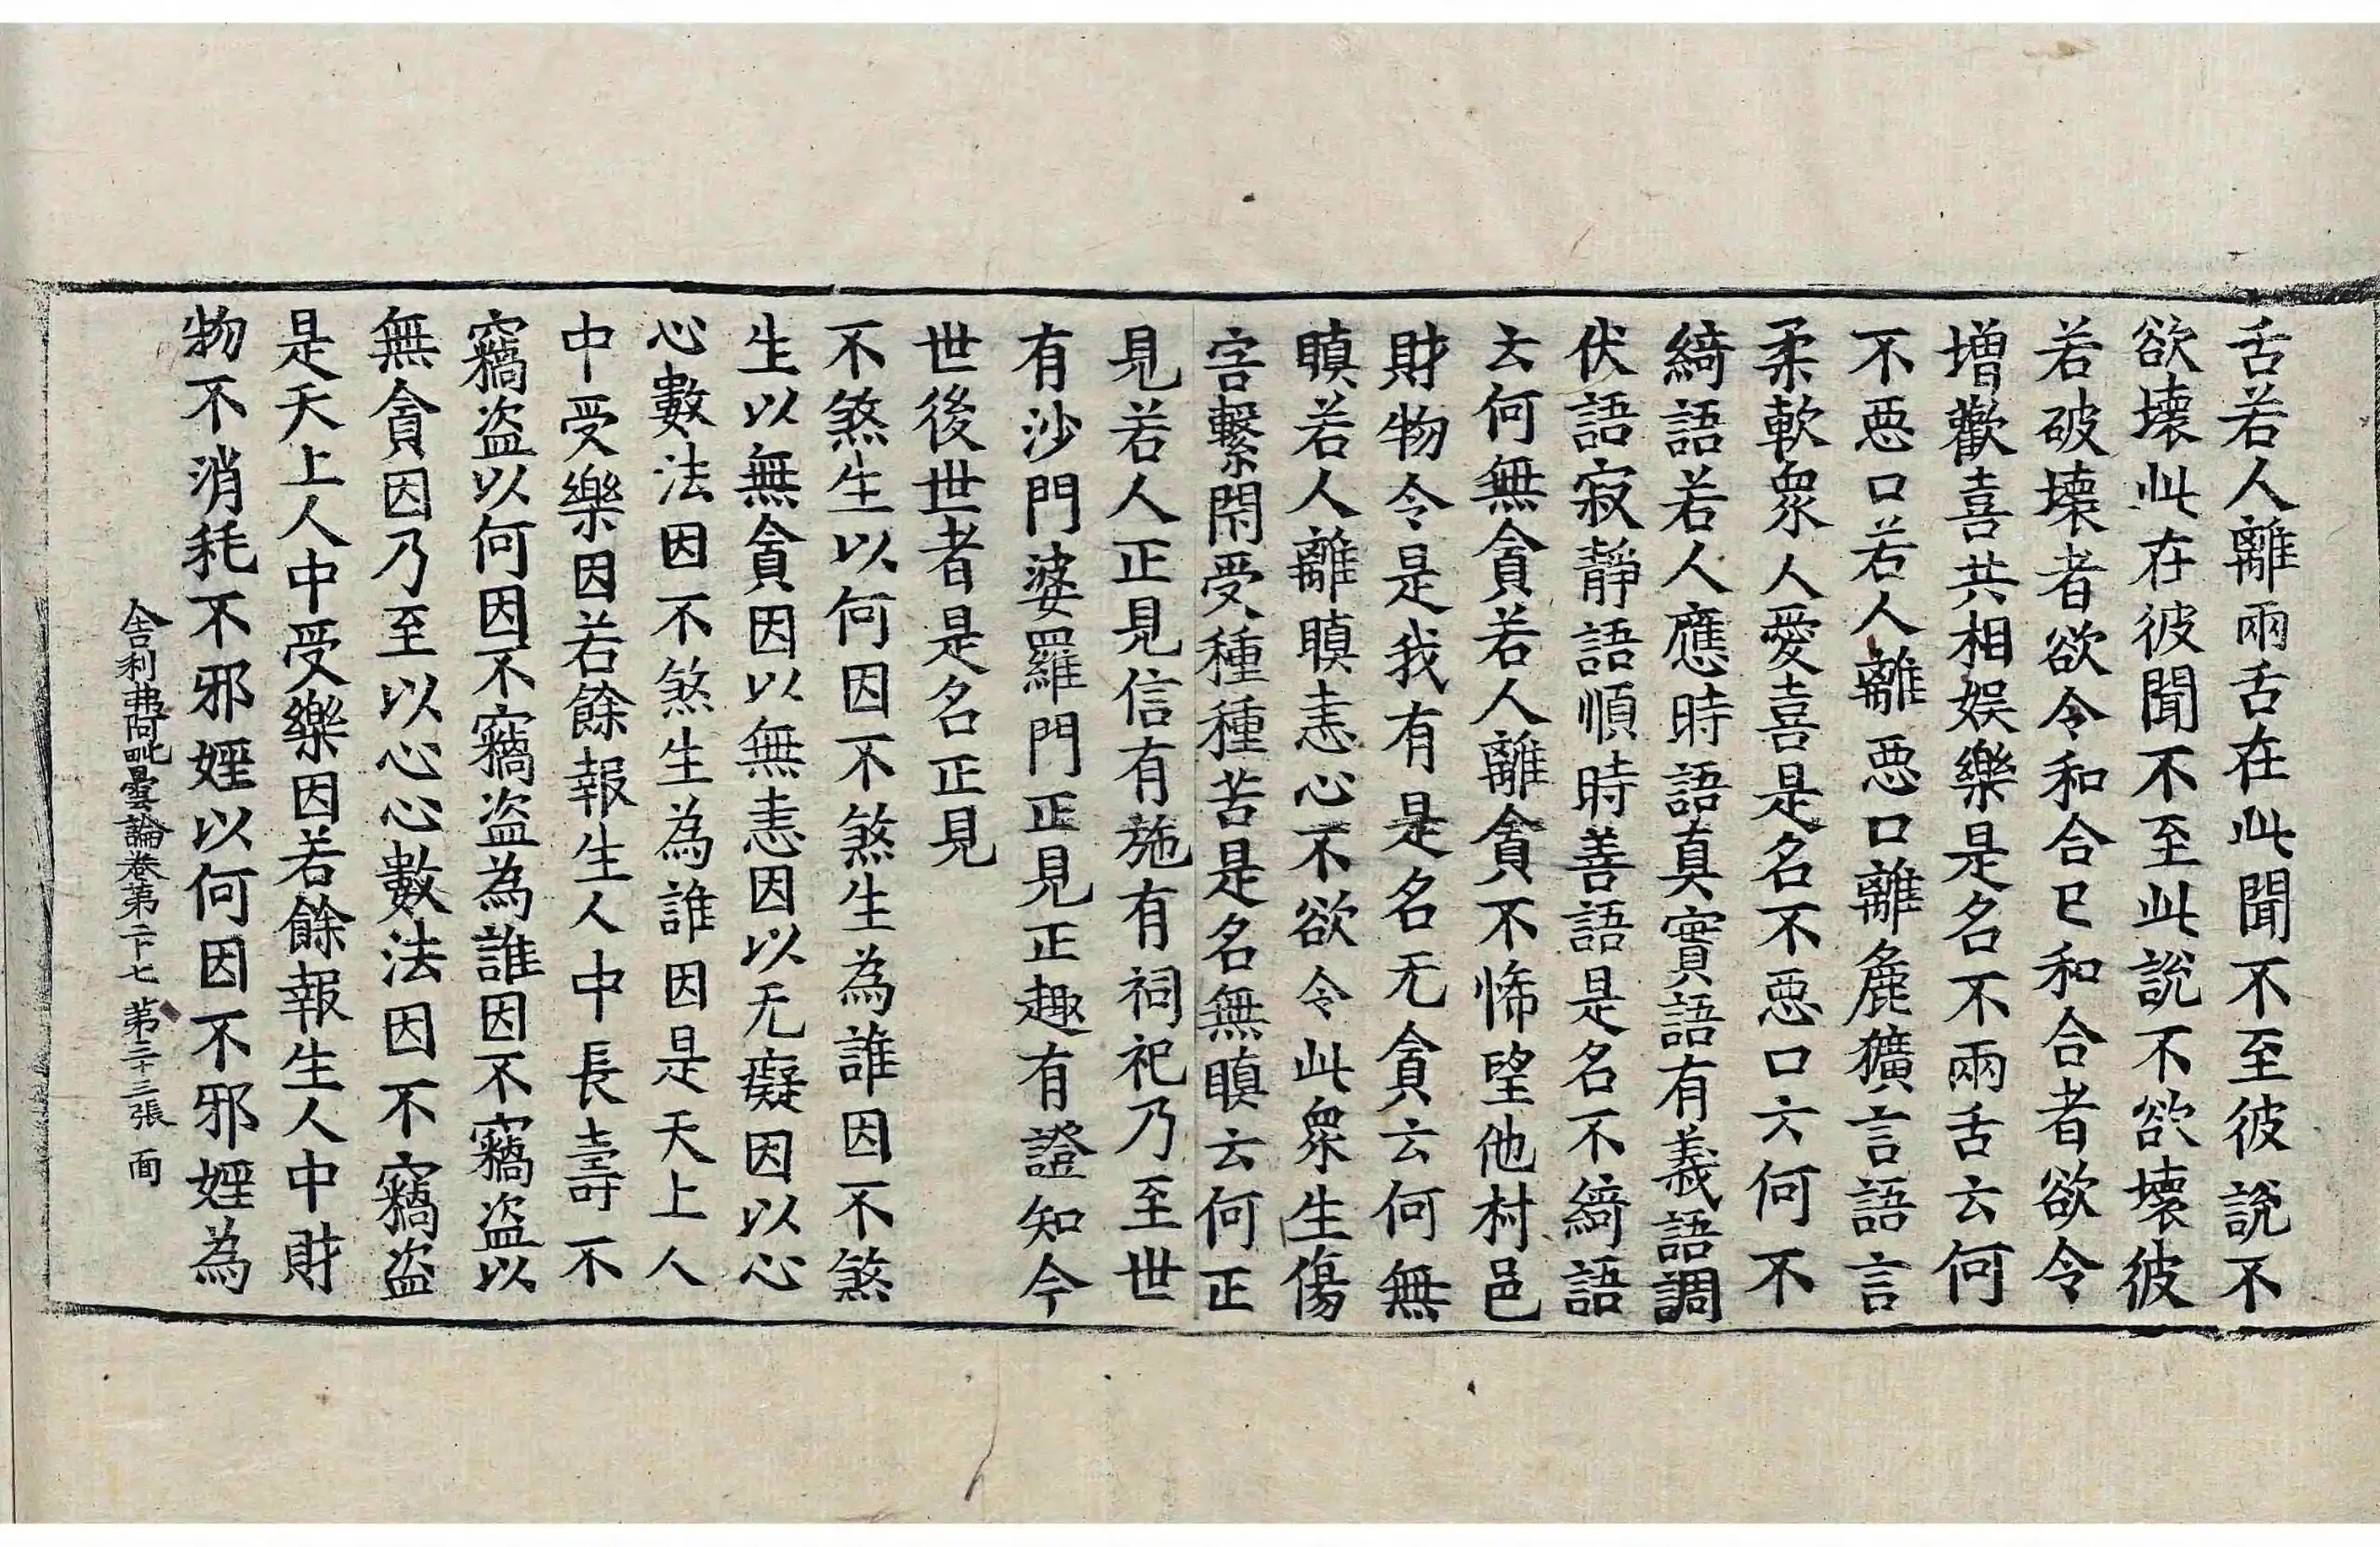 舌若人離兩舌在此聞不至彼說不
欲壞此在彼聞不至此說不欲壞彼
若破壞者欲令和合已和合者欲令
增歡喜共相娛樂是名不兩舌云何
不惡口若人離惡口離麁獷言語言
柔軟衆人愛喜是名不惡口云何不
綺語若人應時語真實語有義語調
伏語寂靜語順時善語是名不綺語
云何無貪若人離貪不悕望他村邑
財物令是我有是名无貪云何無
瞋若人離瞋恚心不欲令此衆生傷
害繫閇受種種苦是名無瞋云何正
見若人正見信有施有祠祀乃至世
有沙門婆羅門正見正趣有證知今
世後世者是名正見
不煞生以何因不煞生為誰因不煞
生以無貪因以無恚因以无癡因以心
心數法因不煞生為誰因是天上人
中受樂因若餘報生人中長壽不
竊盜以何因不竊盜為誰因不竊盜以
無貪因乃至以心心數法因不竊盜
是天上人中受樂因若餘報生人中財
物不消耗不邪婬以何因不邪婬為
舍利弗阿毗曇論卷第二十七 第二十三張 面